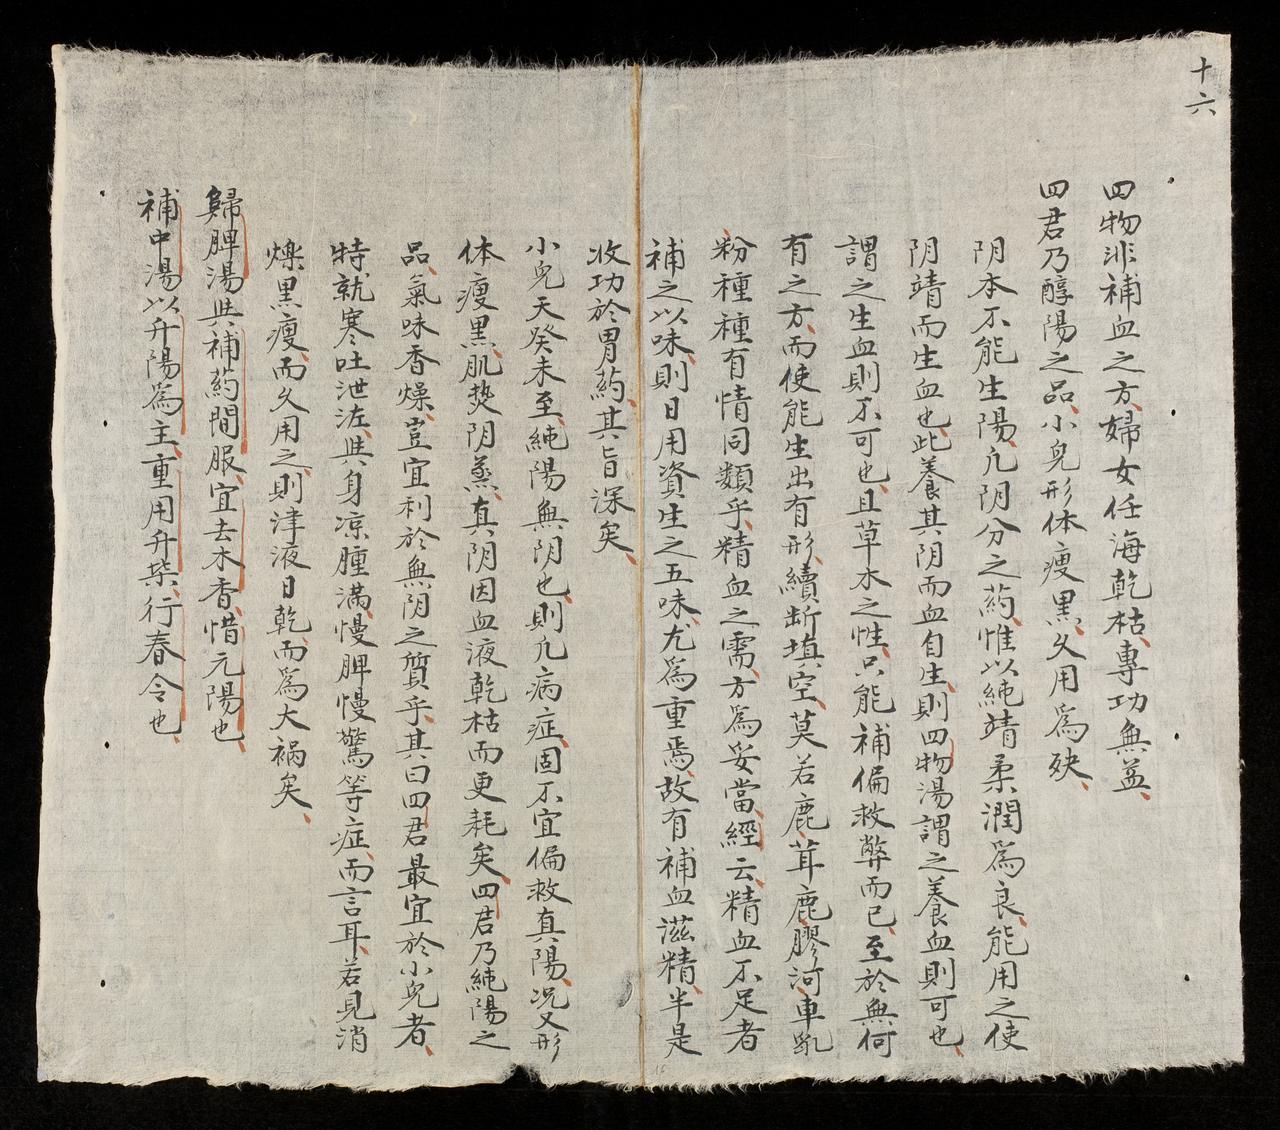 十六
四物非補血之方婦女任海乾枯專功無益
四君乃醇陽之品小兒形体瘦黑久用為殃
阴本不能生陽凢阴分之葯惟以純靖柔潤為良能用之使
阴靖而生血也此養其阴而血自生則四物湯謂之養血則可也
謂之生血則不可也且草木之性只能補偏救弊而已至於無何
有之方而使能生出有形續断填空莫若鹿茸鹿膠河車乱
粉種種有情同類乎精血之需方為妥當經云精血不足者
補之以味則日用資生之五味尤為重焉故有補血滋精半是
收功於胃葯其旨深矣
小兒天癸未至純陽無阴也則凢病症固不宜偏救真陽况又形
体瘦黒肌熱阴蒸真阴因血液乾枯而更耗矣四君乃純陽之
品氣味香燥豈宜利於無阴之質乎其曰四君最宜於小兒者
特就寒吐泄泻與身凉腫満慢脾慢驚等症而言耳若見消
爍黒瘦而久用之則津液日乾而為大禍矣
歸脾湯與補葯間服宜去木香惜元陽也
補中湯以升陽為主重用升柴行春令也